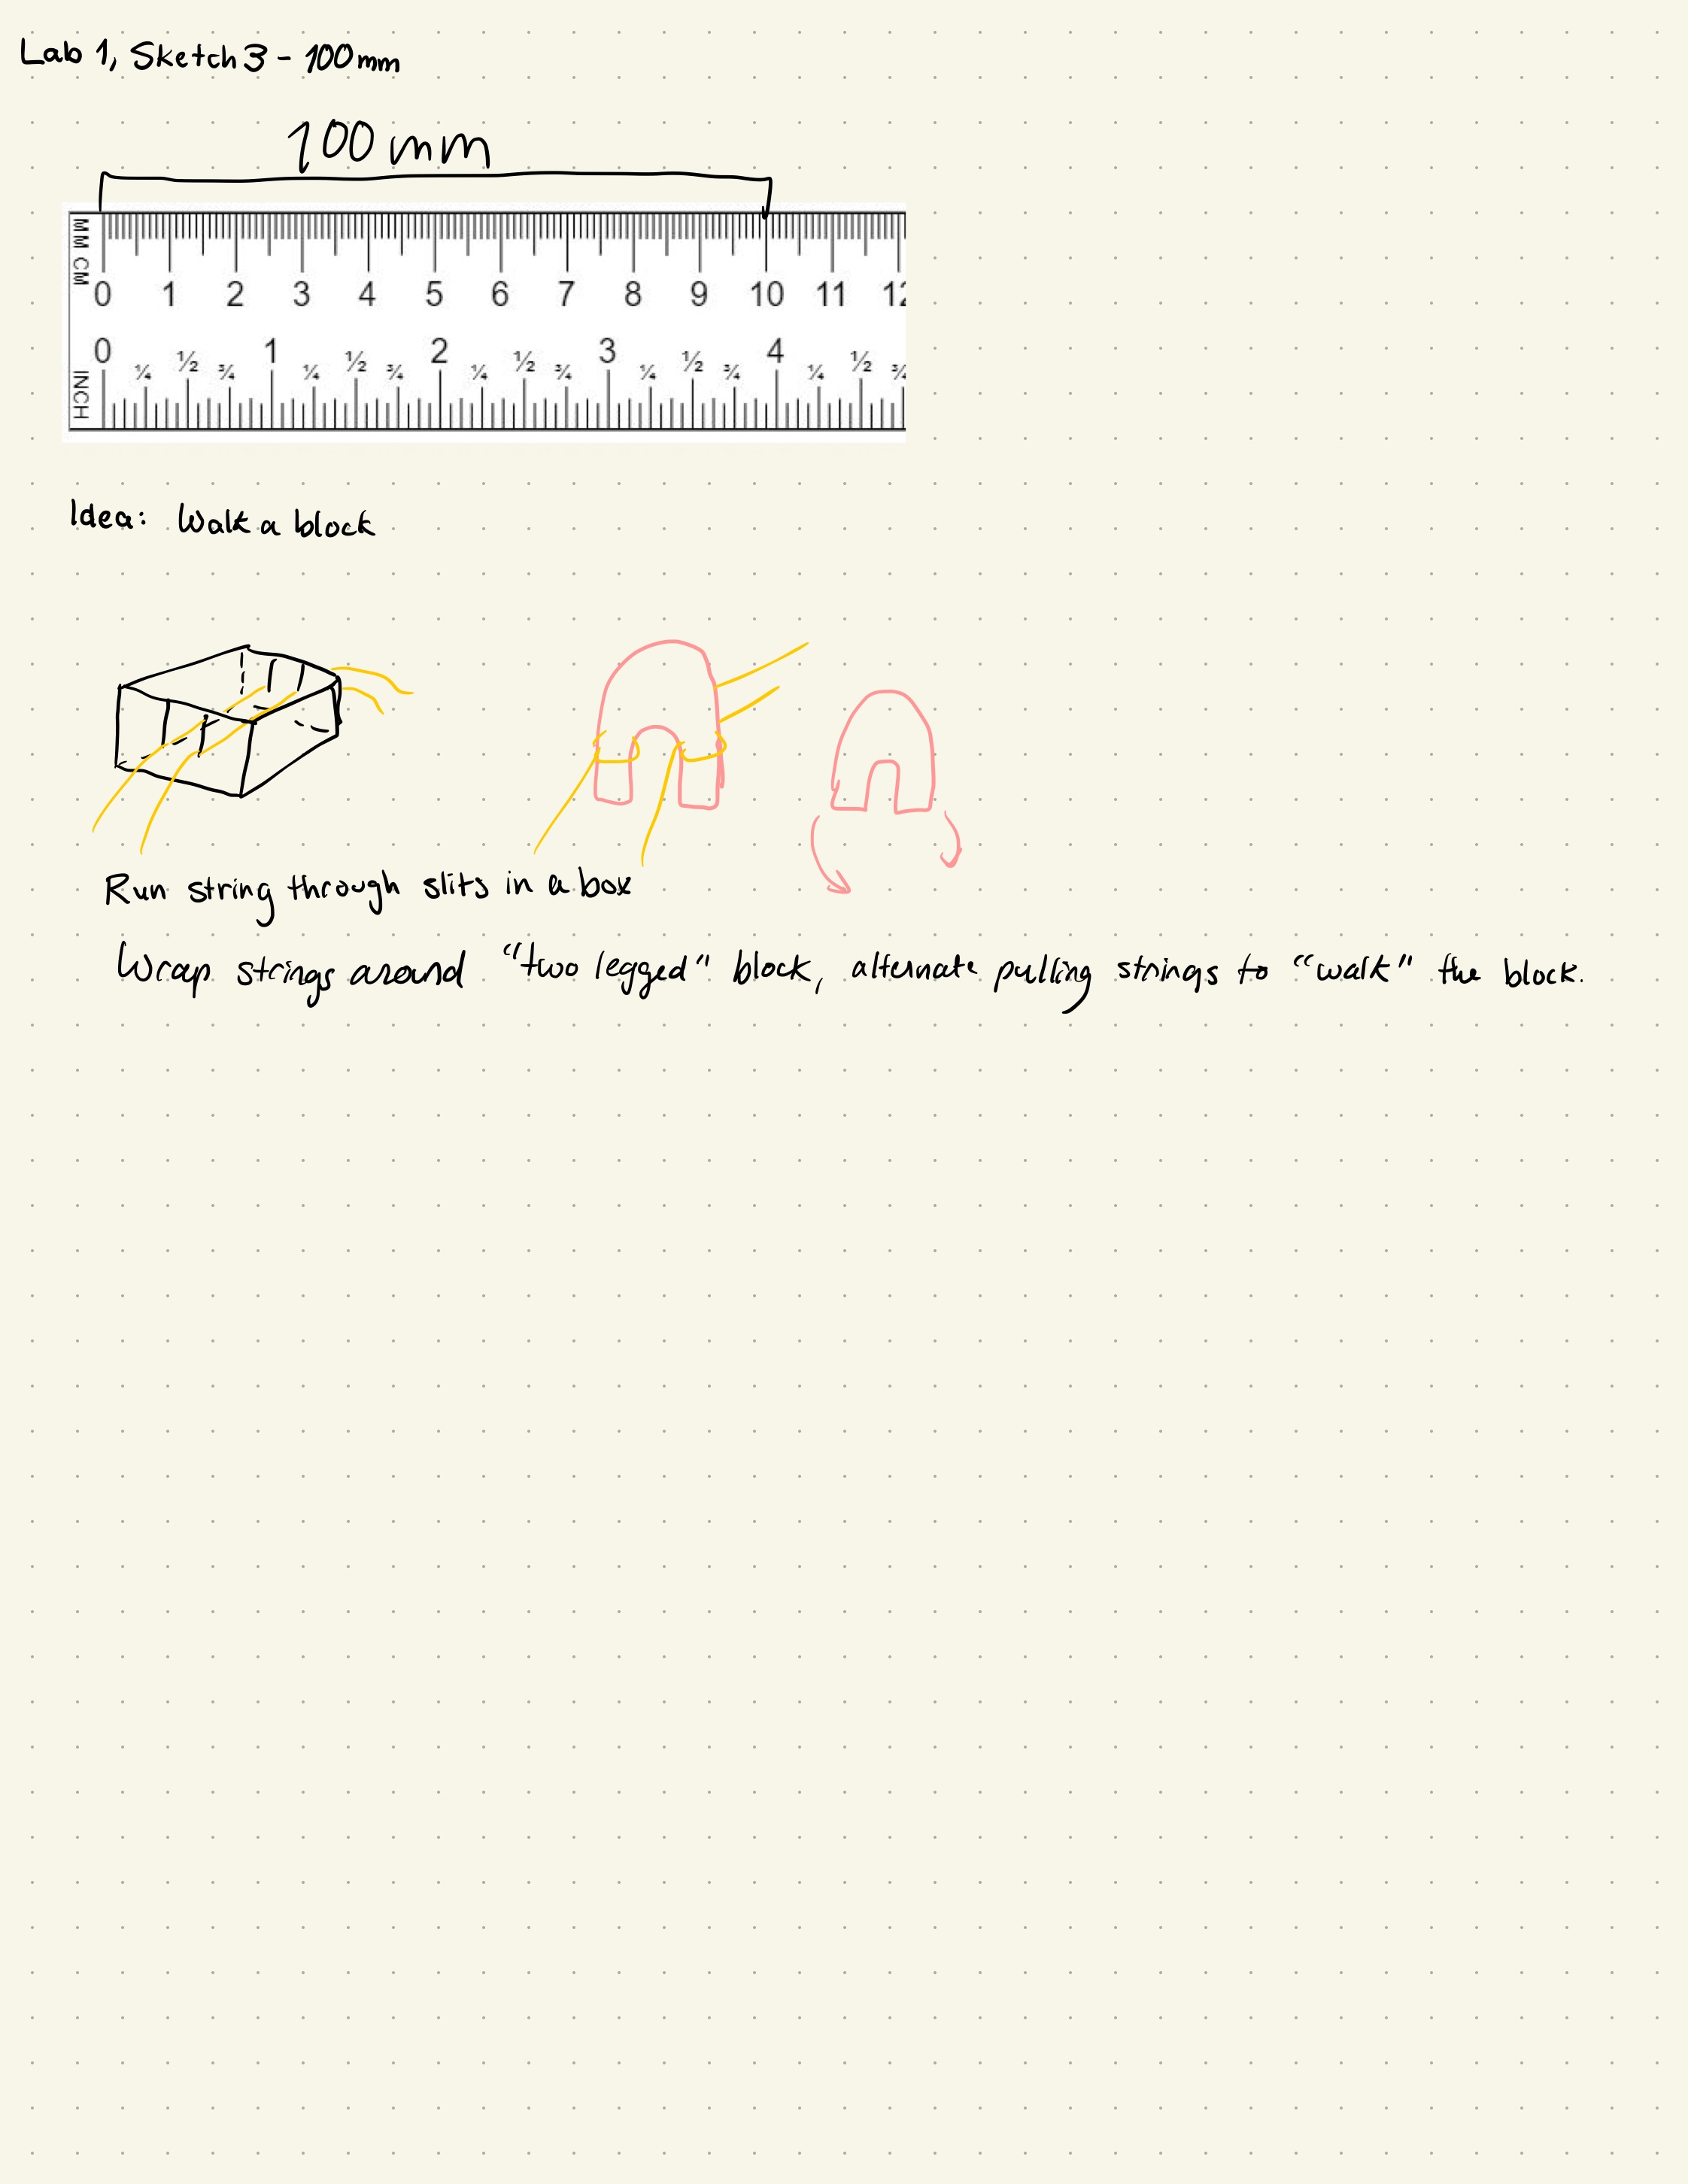 Lab 1, Sketch 3 - 100mm
100 mm
MM CM
0 1 2 3 4 5 6 7 8 9 10 11 12
0 1 2 3 4
¼ ½ ¾ ¼ ½ ¾ ¼ ½ ¾ ¼ ½ ¾ ¼ ½ ¾
INCH
Idea: Walk a block
Run string through slits in a box
Wrap strings around "two legged" block, alternate pulling strings to "walk" the block.